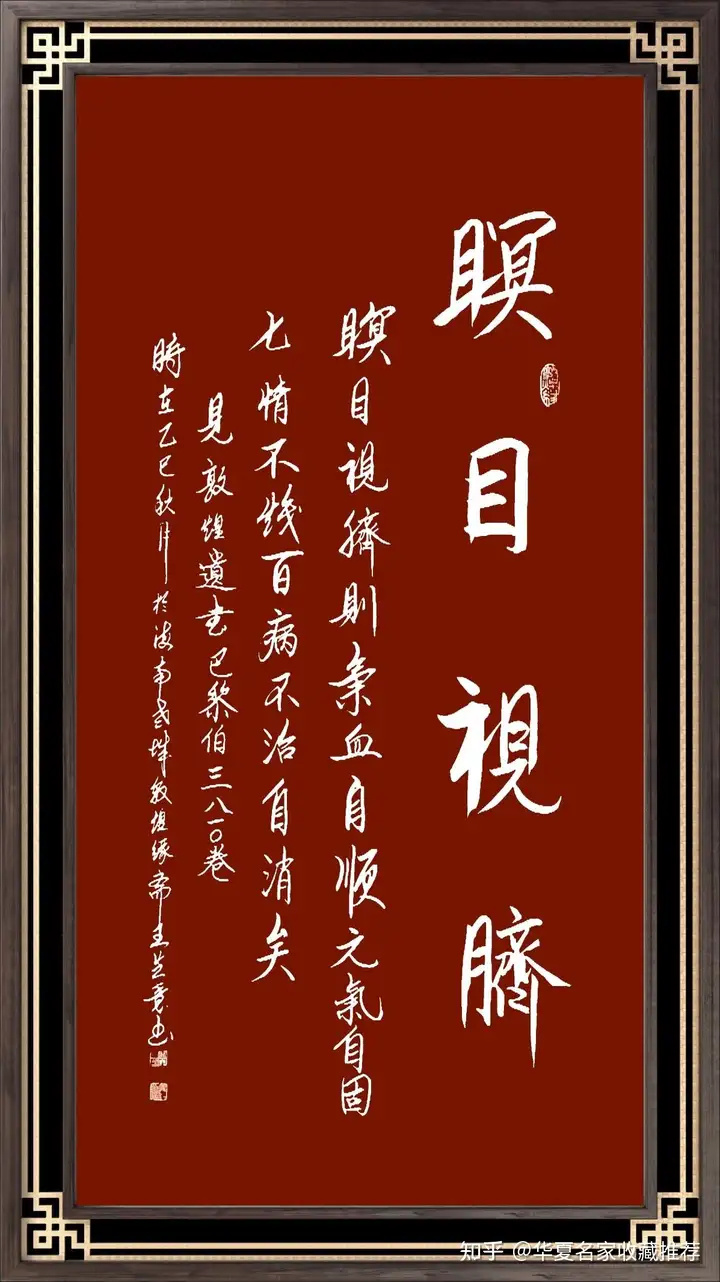 瞑目視臍
瞑目視臍則氣血自順元氣自固
七情不饯百病不治自消矣
見敦煌遺书巴黎伯三八一〇卷
時在乙巳秋月於海南老城敦煌缘斋王
知乎 @华夏名家收藏推荐